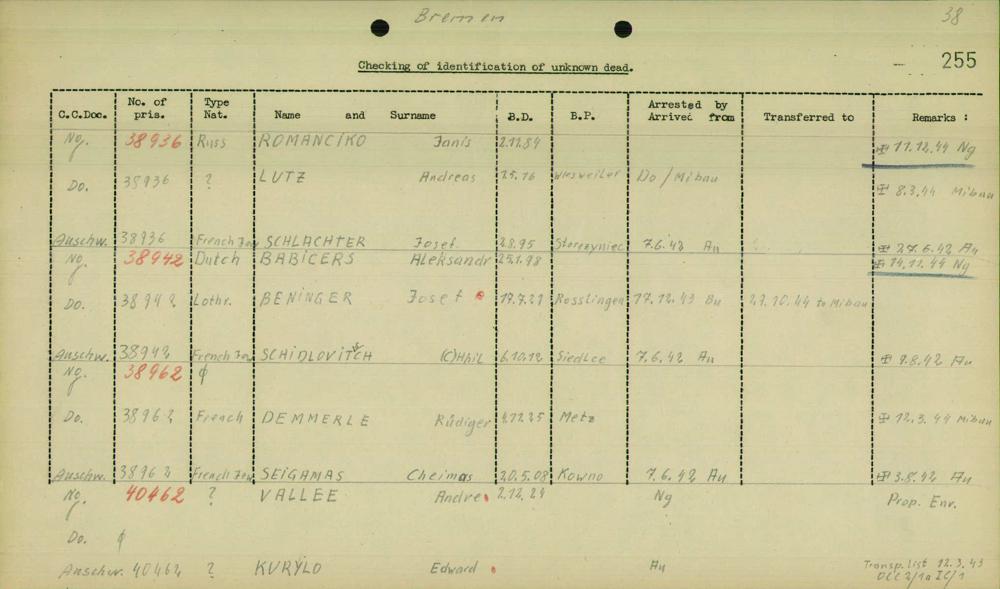 Bremen 38
255
Checking of identification of unknown dead.
C.C.Doc. No. of pris. Type Nat. Name and Surname B.D. B.P. Arrested by Arrived from Transferred to Remarks :
Ng. 38936 Russ ROMANCIKO Janis 2.11.84 11.12.44 Ng
Do. 38936 ? LUTZ Andreas 25.16 Wiesweiler Do / Mibau 8.3.44 Mibau
Auschw. 38936 French Jew SCHLACHTER Josef 2.8.95 Storozyniec 7.6.42 Au 27.6.42 Au
Ng. 38942 Dutch BABICERS Aleksandr 25.1.98 14.11.44 Ng
Do. 38942 Lothr. BENINGER Josef 19.7.21 Rosslingen 17.12.43 Bu 29.10.44 to Mibau
Auschw. 38942 French Jew SCHIDLOVITCH (C)Hhil 6.10.12 Siedlce 7.6.42 Au 9.8.42 Au
Ng. 38962 ϕ
Do. 38962 French DEMMERLE Rüdiger 4.12.25 Metz 12.3.44 Mibau
Auschw. 38962 French Jew SEIGAMAS Cheimas 20.5.08 Kowno 7.6.42 Au 3.8.42 Au
Ng. 40462 ? VALLEE Andre 2.12.24 Ng Prop. Env.
Do. ϕ
Auschw. 40462 ? KURYLO Edward Au Transp. list 12.3.43
OCC2/1a IC/1